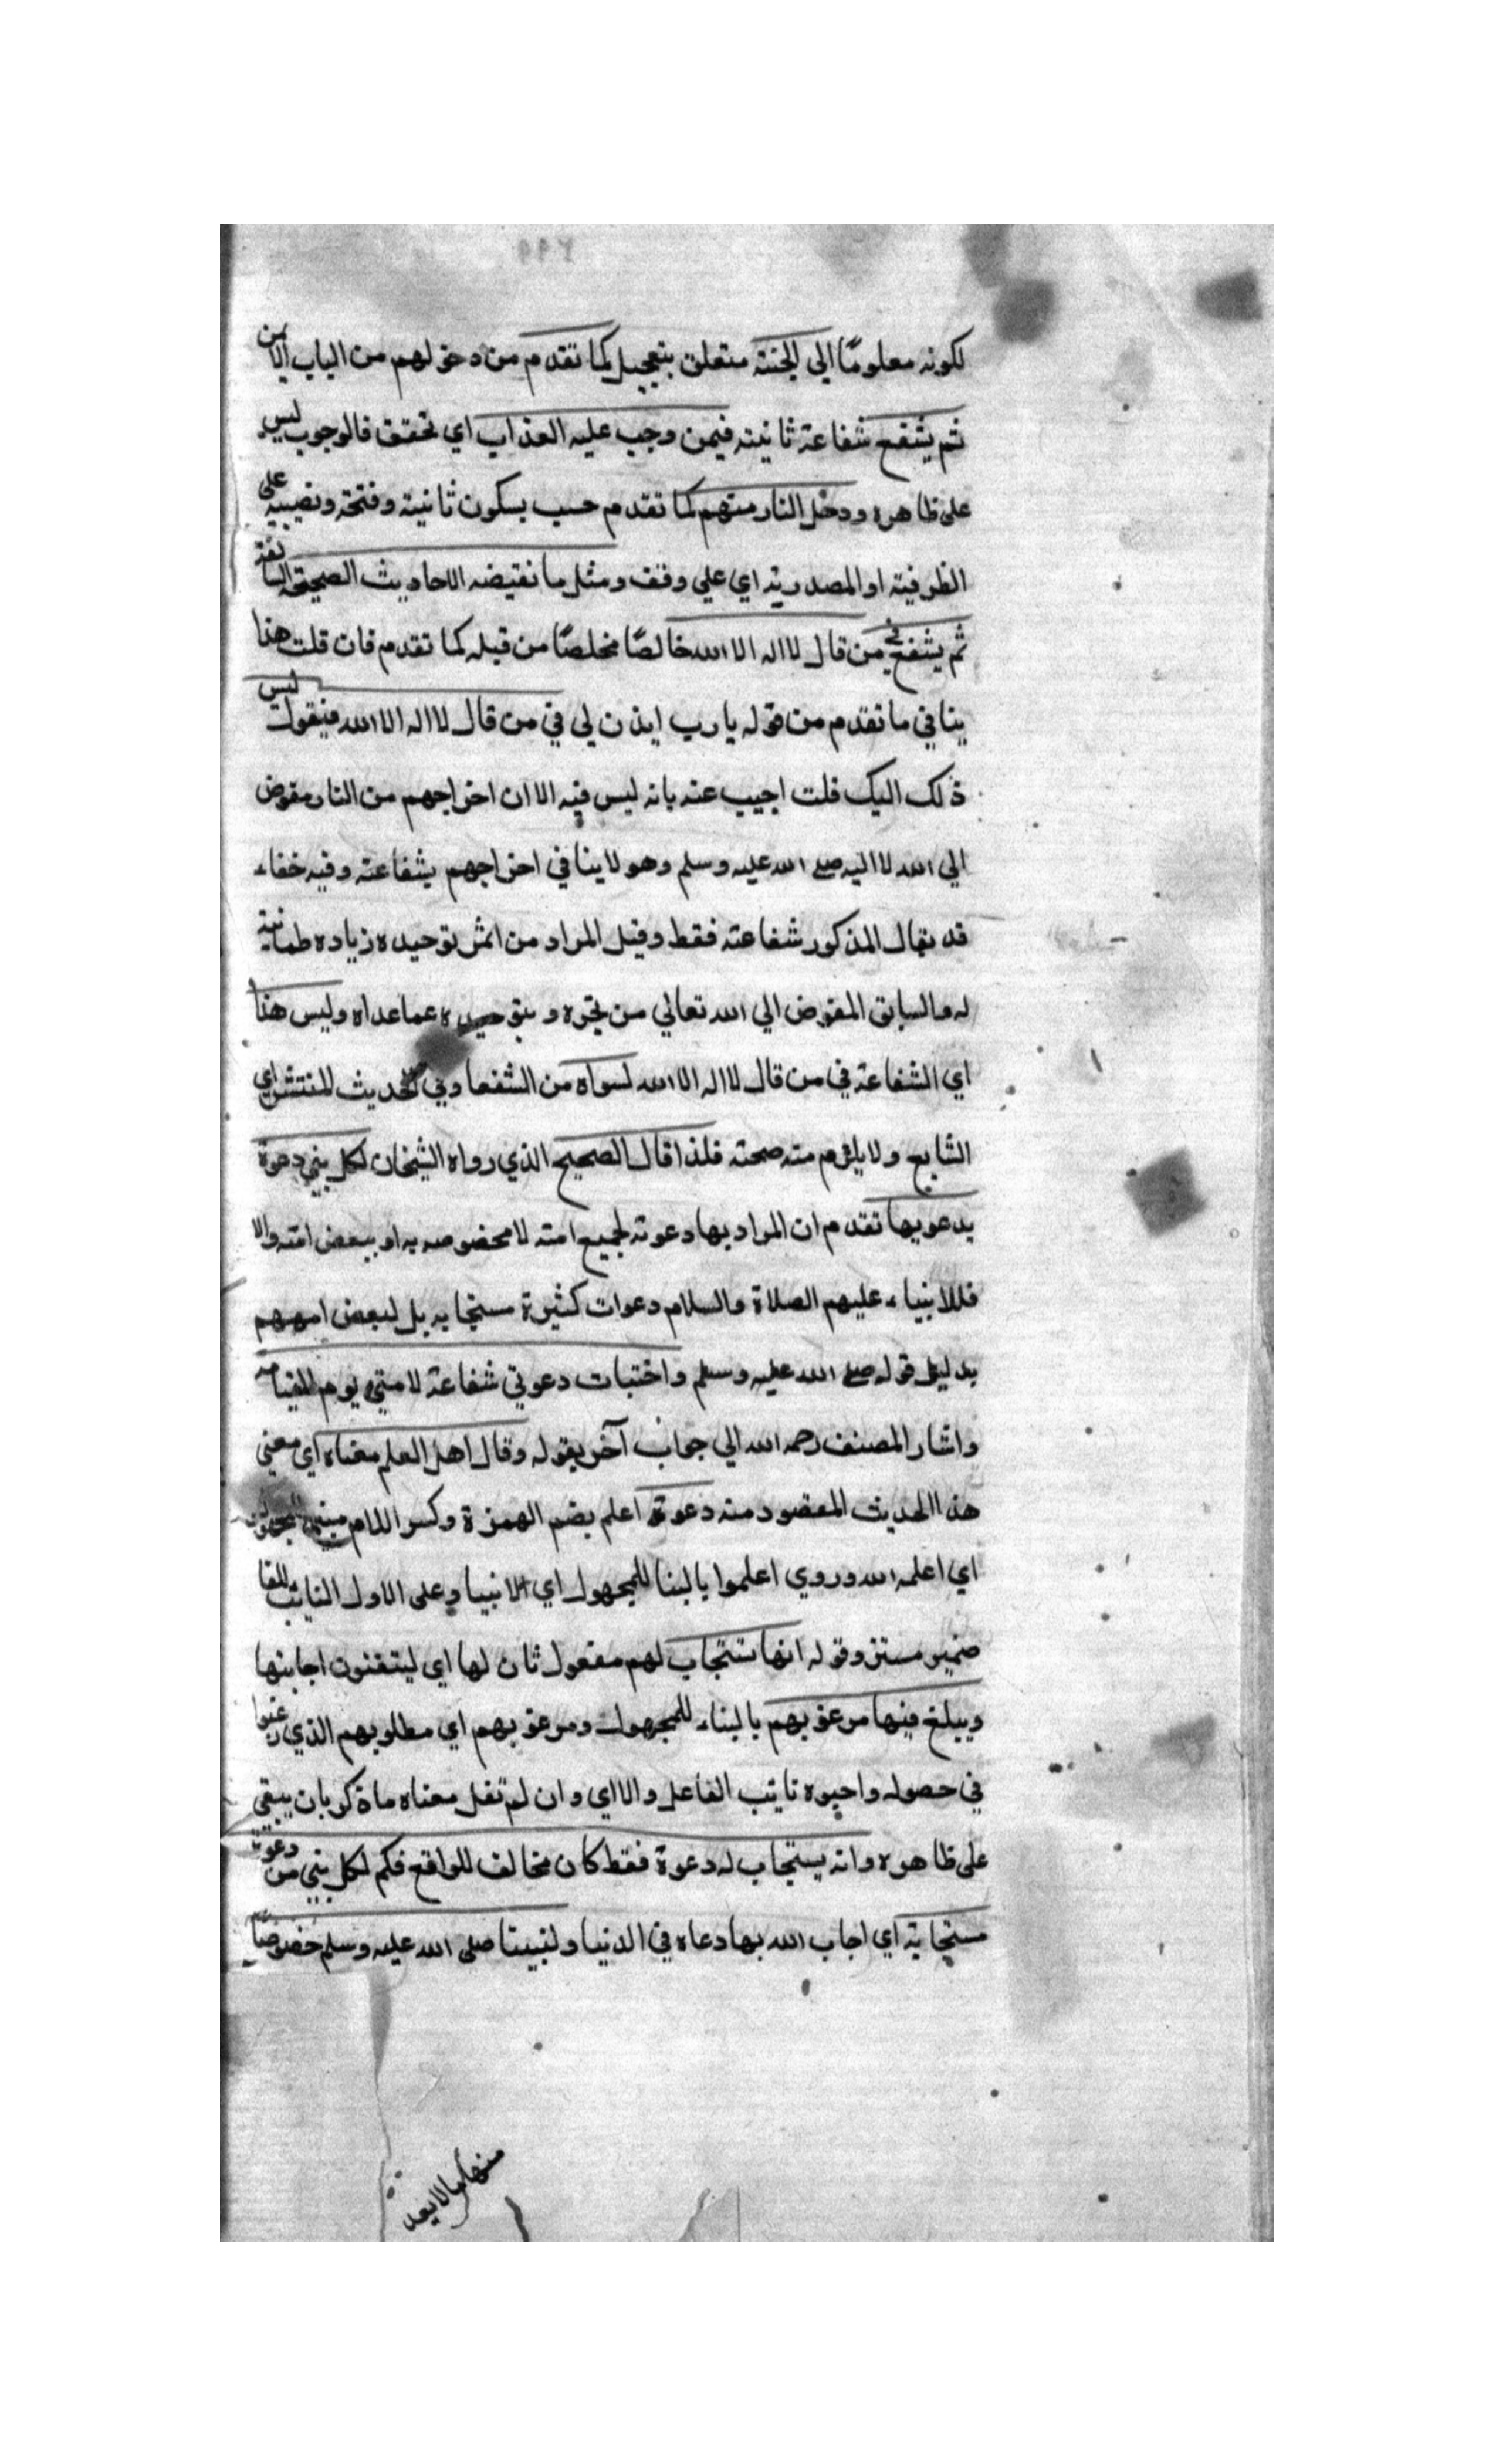 لكونه معلومًا الي الجنة متعلق بتعجيل كما تقدم من دخولهم من الباب الايمن
ثم يشفع شفاعة ثانية فيمن وجب عليه العذاب اي تحقق فالوجوب ليس
علي ظاهره ودخل النار منهم كما تقدم حسب بسكون ثانية وفتحة ونصبه علي
الظرفية او المصدرية اي علي وفق ومثل ما تقيضه الاحاديث الصحيحة السابقة
ثم يشفع في من قال لا اله الا الله خالصًا مخلصًا من قبله كما تقدم فان قلت هذا
ينافي ما تقدم من قوله يا رب ايذن لي في من قال لا اله الا الله فيقول ليس
ذلك اليك قلت اجيب عنه بانه ليس فيه الا ان اخراجهم من النار مفوض
الي الله لا اليه صلي الله عليه وسلم وهو لا ينافي اخراجهم بشفاعته وفيه خفاء
قد يقال المذكور شفاعته فقط وقيل المراد من اثمر توحيده زياده طمانية
له والسابق المفوض الي الله تعالي من تجوه وبتوحيده عما عداه وليس هذا
اي الشفاعة في من قال لا اله الا الله لسواه من الشفعا وفي الحديث المنتشر اي
الشايع ولا يلزم منه صحته فلذا قال الصحيح الذي رواه الشيخان لكل نبي دعوة
يدعو بها تقدم ان المراد بها دعوته لجميع امته لا مخصوصه به او ببعض امته والا
فللانبياء عليهم الصلاة والسلام دعوات كثيرة مستجابه بل لبعض اممهم
بدليل قوله صلي الله عليه وسلم واختبات دعوتي شفاعة لامتي يوم القيامه
واشار المصنف رحمه الله الي جواب آخر بقوله وقال اهل العلم معناه اي معني
هذا الحديث المقصود منه دعوة اعلم بضم الهمزة وكسر اللام مبني للمجهول
اي اعلمه الله وروي اعلموا بالبنا للمجهول اي الانبيا وعلي الاول النائب للفا
ضمير مستتر وقوله انها تستجاب لهم مفعول ثان لها اي ليتقنون اجابتها
ويبلغ فيها مرغوبهم بالبناء للمجهول ومرغوبهم اي مطلوبهم الذي رغبوا
في حصوله واحبوه نائب الفاعل والا اي وان لم تقل معناه ما ذكر بان يبقي
علي ظاهره وانه يستجاب له دعوة فقط كان مخالف للواقع فكم لكل نبي من دعوة
مستجابة اي اجاب الله بها دعاه في الدنيا ولنبينا صلي الله عليه وسلم خصوصًا
منها ما لا يعد